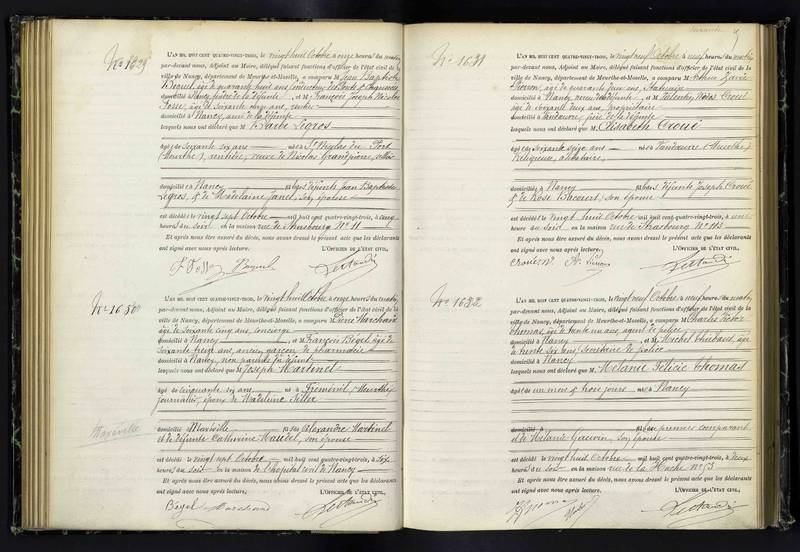 No 1629
L'AN MIL HUIT CENT QUATRE-VINGT-TROIS, le vingt huit Octobre à onze heures du matin
par-devant nous, Adjoint au Maire, délégué faisant fonctions d'officier de l'état civil de la
ville de Nancy, département de Meurthe-et-Moselle, a comparu M Jean Baptiste
âgé de quarante huit ans Conducteur des Ponts et Chaussées
domicilié à Nancy de la défunte, et M François Joseph Nicolas
âgé de soixante onze ans, rentier
domicilié à Nancy, ami de la défunte
lesquels nous ont déclaré que M Barbe Legros
âgée de soixante six ans née à St Nicolas du Port
(Meurthe), rentière, veuve de Nicolas Grandpierre
domiciliée à Nancy fille des défunts Jean Baptiste
Legros, & de Madelaine Janet, son épouse
est décédée le vingt sept Octobre mil huit cent quatre-vingt-trois, à cinq
heures du soir en la maison rue de Strasbourg No 11
Et après nous être assuré du décès, nous avons dressé le présent acte que les déclarants
ont signé avec nous après lecture. L'OFFICIER DE L'ÉTAT CIVIL,
No 1630
L'AN MIL HUIT CENT QUATRE-VINGT-TROIS, le vingt huit Octobre à onze heures du matin,
par-devant nous, Adjoint au Maire, délégué faisant fonctions d'officier de l'état civil de la
ville de Nancy, département de Meurthe-et-Moselle, a comparu M Pierre Marchand
âgé de soixante cinq ans, concierge
domicilié à Nancy, et M François Bégel, âgé de
soixante ans, ancien garçon de pharmacie
domicilié à Nancy, non parents du défunt
lesquels nous ont déclaré que M Joseph Martinet
âgé de cinquante six ans né à Fréménil (Meurthe)
journalier, époux de Madelaine
Maxéville
domicilié à Maxéville fils de Alexandre Martinet
et de défunte Catherine Mandel, son épouse
est décédé le vingt sept Octobre mil huit cent quatre-vingt-trois, à six
heures du soir en la maison de l'hôpital civil de Nancy
Et après nous être assuré du décès, nous avons dressé le présent acte que les déclarants
ont signé avec nous après lecture. L'OFFICIER DE L'ÉTAT CIVIL,
Bégel Marchand
No 1631
L'AN MIL HUIT CENT QUATRE-VINGT-TROIS, le vingt neuf Octobre à neuf heures du matin
par-devant nous, Adjoint au Maire, délégué faisant fonctions d'officier de l'état civil de la
ville de Nancy, département de Meurthe-et-Moselle, a comparu M Arthur Xavier
âgé de quarante deux ans, Statuaire
domicilié à Nancy neveu de la défunte, et M Valentin Croué
âgé de soixante deux ans, propriétaire
domicilié à Vandœuvre, frère de la défunte
lesquels nous ont déclaré que M Elisabeth Croué
âgée de soixante seize ans née à Vandœuvre (Meurthe)
Religieuse, célibataire,
domiciliée à Nancy fille des défunts Joseph Croué
& de Rose Bacourt, son épouse
est décédée le vingt huit Octobre mil huit cent quatre-vingt-trois, à une
heure du soir en la maison rue de Strasbourg No 113
Et après nous être assuré du décès, nous avons dressé le présent acte que les déclarants
ont signé avec nous après lecture. L'OFFICIER DE L'ÉTAT CIVIL,
No 1632
L'AN MIL HUIT CENT QUATRE-VINGT-TROIS, le vingt neuf Octobre à neuf heures du matin,
par-devant nous, Adjoint au Maire, délégué faisant fonctions d'officier de l'état civil de la
ville de Nancy, département de Meurthe-et-Moselle, a comparu M Charles Victor
Thomas, âgé de trente un ans, agent de police
domicilié à Nancy, et M Michel Thiébaut, âgé
de trente six ans, Secrétaire de police
domicilié à Nancy
lesquels nous ont déclaré que M Mélanie Félicie Thomas
âgée de un mois & trois jours née à Nancy
domiciliée à fille du premier comparant
et de Mélanie Gauvin, son épouse
est décédée le vingt huit Octobre mil huit cent quatre-vingt-trois, à deux
heures du soir en la maison rue de la Hache No 53
Et après nous être assuré du décès, nous avons dressé le présent acte que les déclarants
ont signé avec nous après lecture. L'OFFICIER DE L'ÉTAT CIVIL,